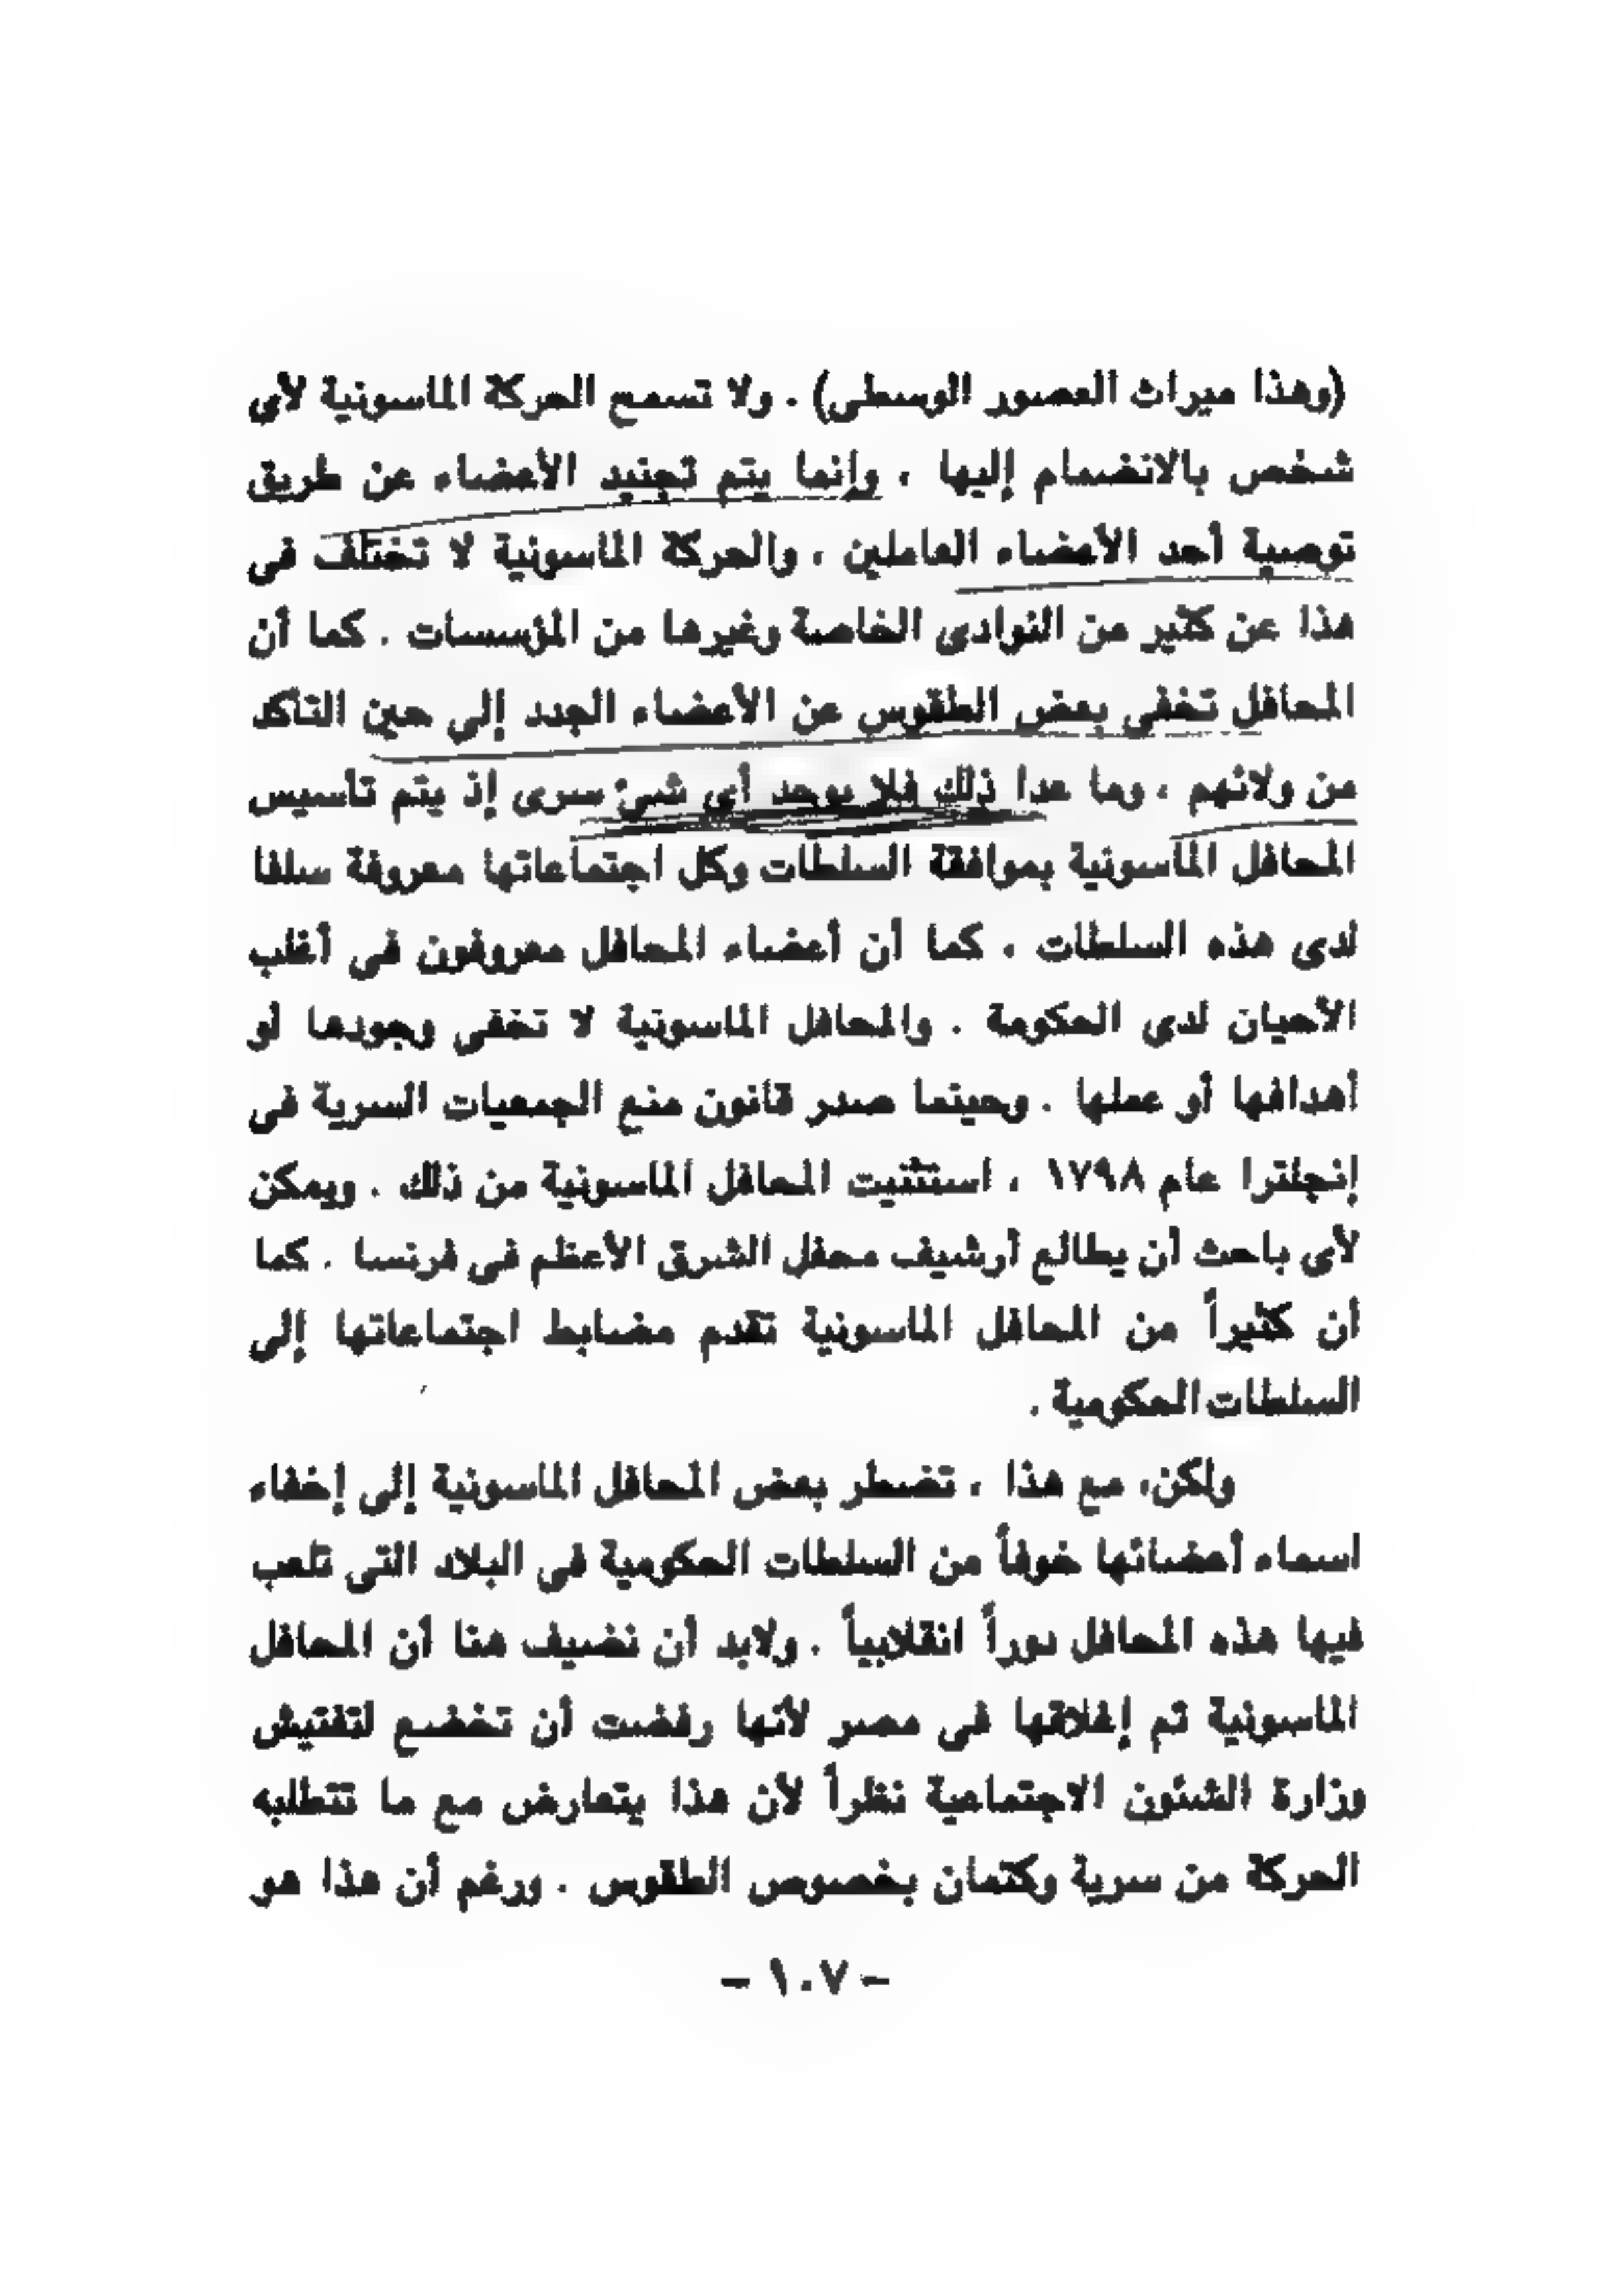 (وهذا ميراث العصور الوسطى) . ولا تسمح الحركة الماسونية لأى
شخص بالانضمام إليها ، وإنما يتم تجنيد الأعضاء عن طريق
توصية أحد الأعضاء العاملين ، والحركة الماسونية لا تختلف فى
هذا عن كثير من النوادى الخاصة وغيرها من المؤسسات . كما أن
المحافل تخفى بعض الطقوس عن الأعضاء الجدد إلى حين التأكد
من ولائهم ، وما عدا ذلك فلا يوجد أى شىء سرى إذ يتم تأسيس
المحافل الماسونية بموافقة السلطات وكل اجتماعاتها معروفة سلفا
لدى هذه السلطات ، كما أن أعضاء المحافل معروفون فى أغلب
الأحيان لدى الحكومة . والمحافل الماسونية لا تخفى وجودها لو
أهدافها أو عملها . وحينما صدر قانون منع الجمعيات السرية فى
إنجلترا عام ١٧٩٨ ، استثنيت المحافل الماسونية من ذلك . ويمكن
لأى باحث أن يطالع أرشيف محفل الشرق الأعظم فى فرنسا . كما
أن كثيراً من المحافل الماسونية تقدم مضابط اجتماعاتها إلى
السلطات الحكومية .
ولكن، مع هذا ، تضطر بعض المحافل الماسونية إلى إخفاء
اسماء أعضائها خوفاً من السلطات الحكومية فى البلاد التى تلعب
فيها هذه المحافل دوراً انقلابياً . ولابد أن نضيف هنا أن المحافل
الماسونية تم إغلاقها فى مصر لأنها رفضت أن تخضع لتفتيش
وزارة الشئون الاجتماعية نظراً لأن هذا يتعارض مع ما تتطلبه
الحركة من سرية وكتمان بخصوص الطقوس . ورغم أن هذا هو
– ١٠٧ –